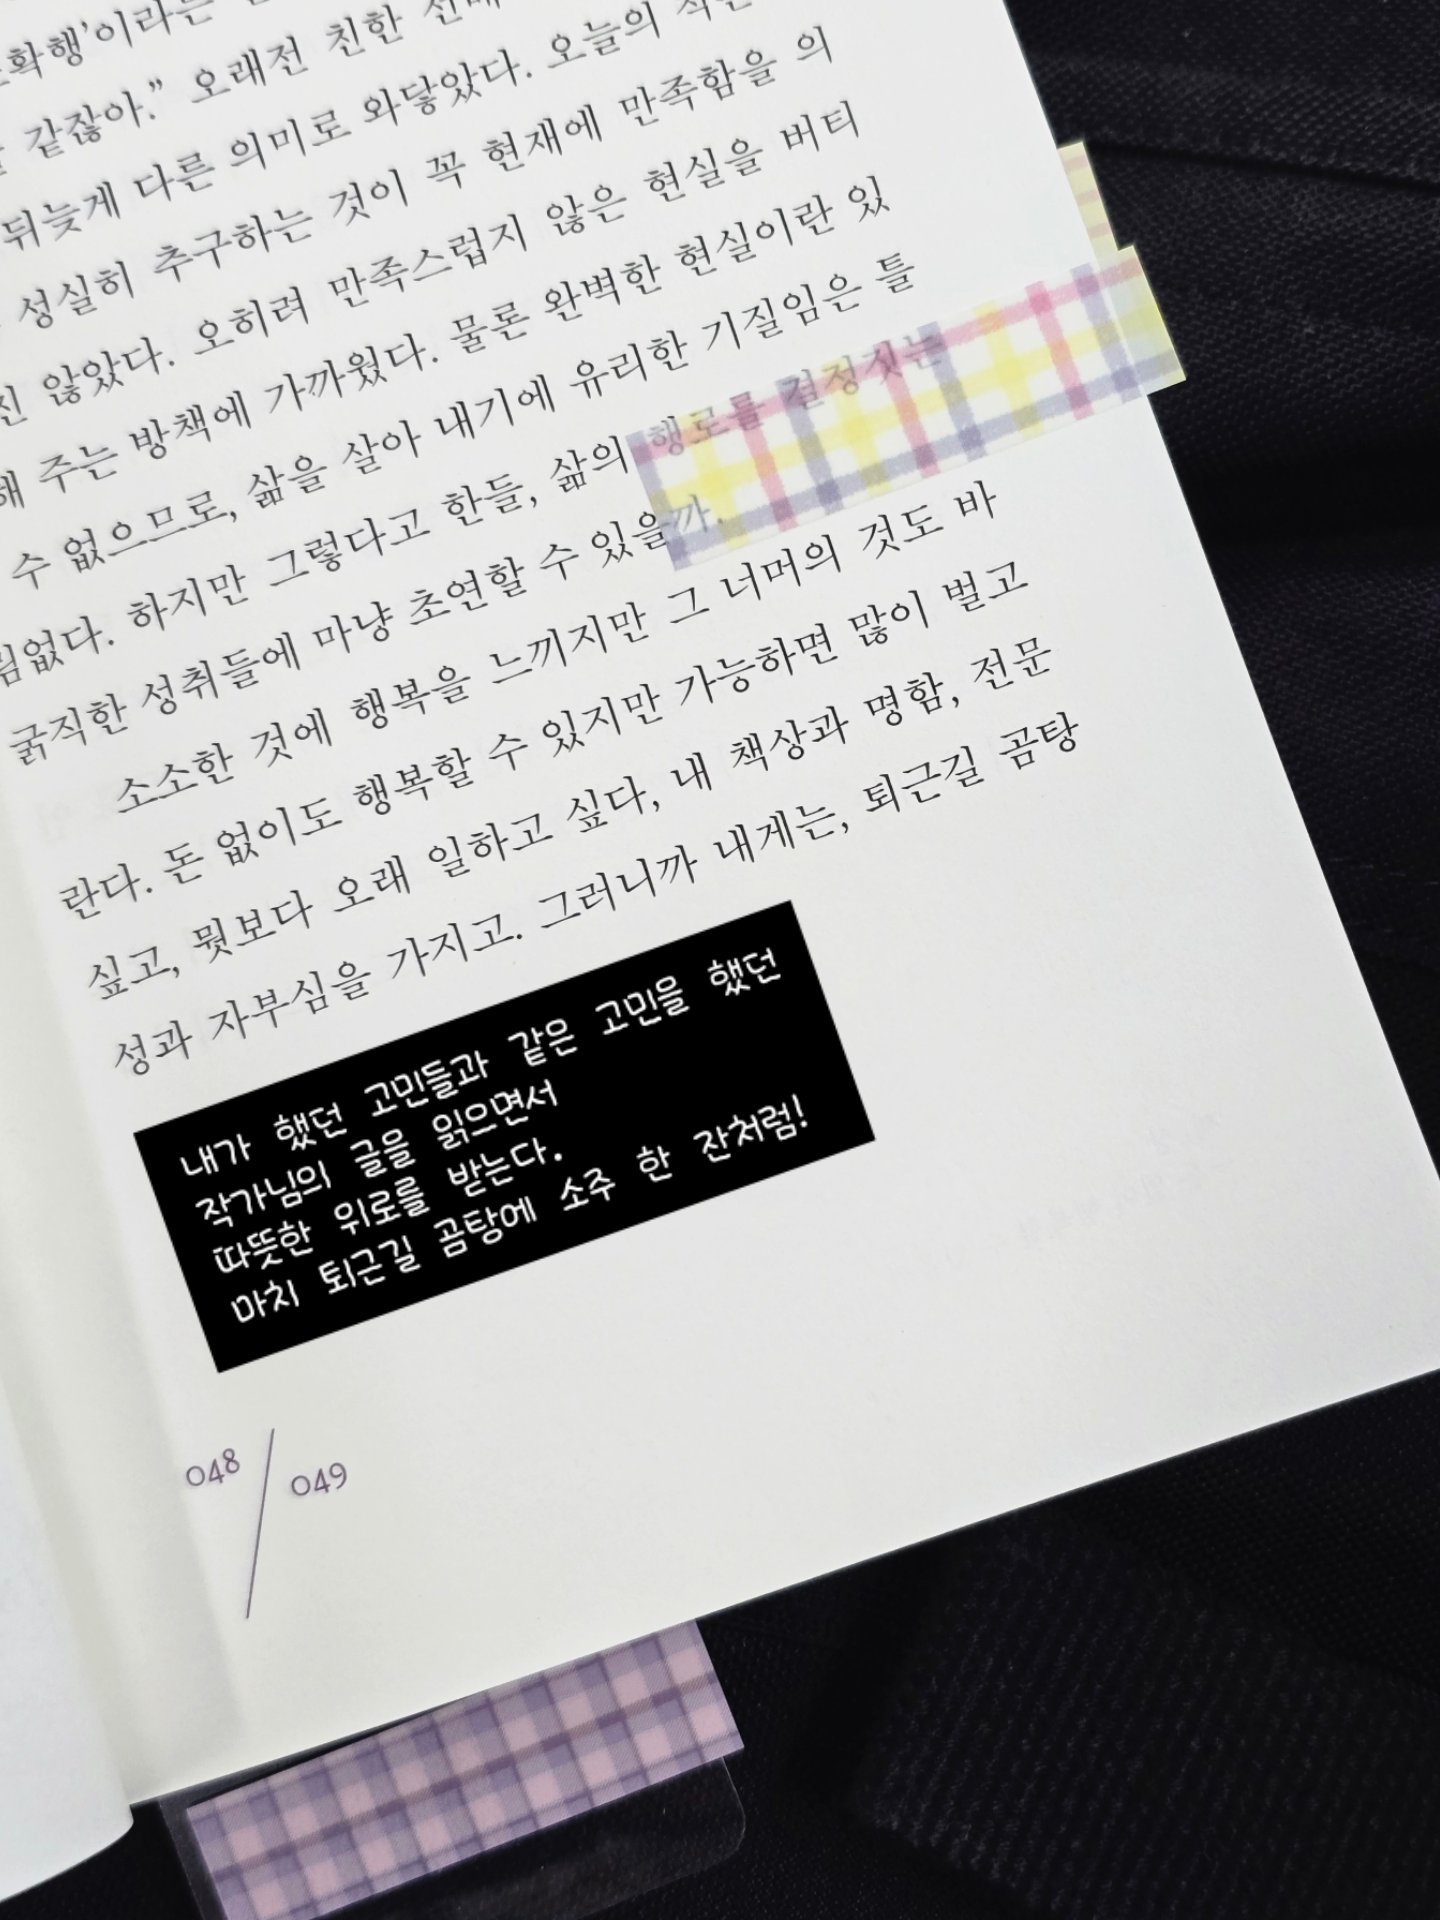 확행’이라는
같잖아.” 오래전 친한 선배
뒤늦게 다른 의미로 와닿았다. 오늘의 작은
성실히 추구하는 것이 꼭 현재에 만족함을 의
않았다. 오히려 만족스럽지 않은 현실을 버티
해 주는 방책에 가까웠다. 물론 완벽한 현실이란 있
수 없으므로, 삶을 살아 내기에 유리한 기질임은 틀
림없다. 하지만 그렇다고 한들, 삶의 행로를 결정짓는
굵직한 성취들에 마냥 초연할 수 있을까.
소소한 것에 행복을 느끼지만 그 너머의 것도 바
란다. 돈 없이도 행복할 수 있지만 가능하면 많이 벌고
싶고, 뭣보다 오래 일하고 싶다, 내 책상과 명함, 전문
성과 자부심을 가지고. 그러니까 내게는, 퇴근길 곰탕
내가 했던 고민들과 같은 고민을 했던
작가님의 글을 읽으면서
따뜻한 위로를 받는다.
마치 퇴근길 곰탕에 소주 한 잔처럼!
048 / 049